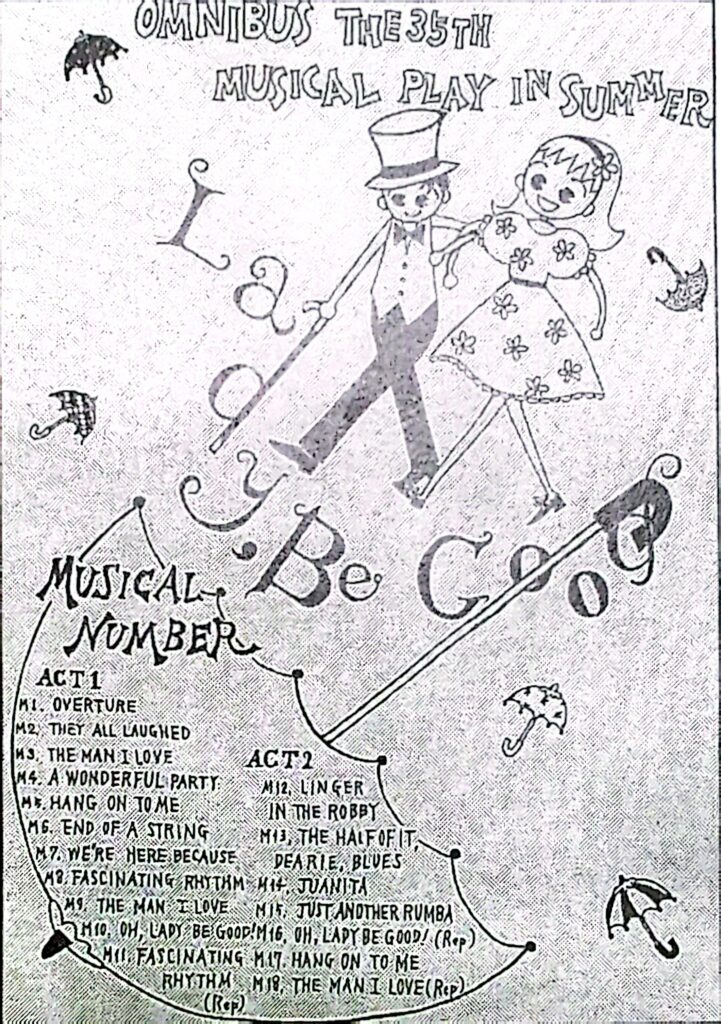 OMNIBUS THE 35TH
MUSICAL PLAY IN SUMMER
Lady, Be Good
MUSICAL
NUMBER
ACT 1
M1. OVERTURE
M2. THEY ALL LAUGHED
M3. THE MAN I LOVE
M4. A WONDERFUL PARTY
M5. HANG ON TO ME
M6. END OF A STRING
M7. WE'RE HERE BECAUSE
M8. FASCINATING RHYTHM
M9. THE MAN I LOVE
M10. OH, LADY BE GOOD!
M11. FASCINATING
RHYTHM
(Rep)
ACT 2
M12. LINGER
IN THE ROBBY
M13. THE HALF OF IT,
DEARIE, BLUES
M14. JUANITA
M15. JUST ANOTHER RUMBA
M16. OH, LADY BE GOOD! (Rep)
M17. HANG ON TO ME
M18. THE MAN I LOVE (Rep)